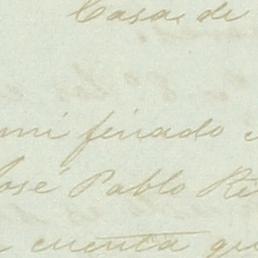 Casa de
mi finado
José Pablo Ri
cuenta qu